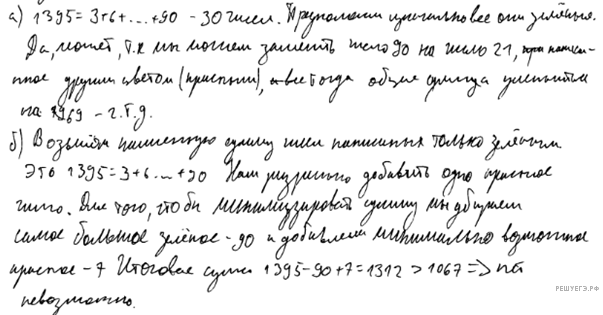 а) 1395 = 3+6+...+90 - 30 чисел. Предположим изначально все они зелёные.
Да, может, т.к мы можем заменить число 90 на число 21, написан-
ное другим цветом (красным), тогда общая сумма уменьшится
на 69 - ч.т.д.
б) Возьмём сумму чисел написанных только зелёным
Это 1395 = 3+6...+90 Нам добавить одно красное
число. Для того, чтобы минимизировать сумму мы убираем
самое большое зелёное - 90 и добавляем минимально возможное
красное - 7 Итоговая сумма 1395-90+7=1312 > 1067 =>
невозможно.
РЕШУЕГЭ.РФ